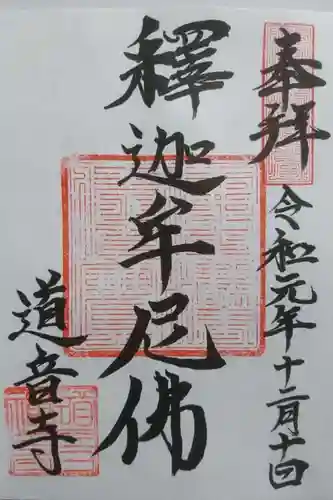 奉拝
令和元年十二月十四日
釋迦牟尼佛
道音寺